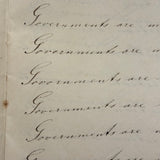 Governments are
Governments are
Governments are
Governments are
Governments are
Governments are